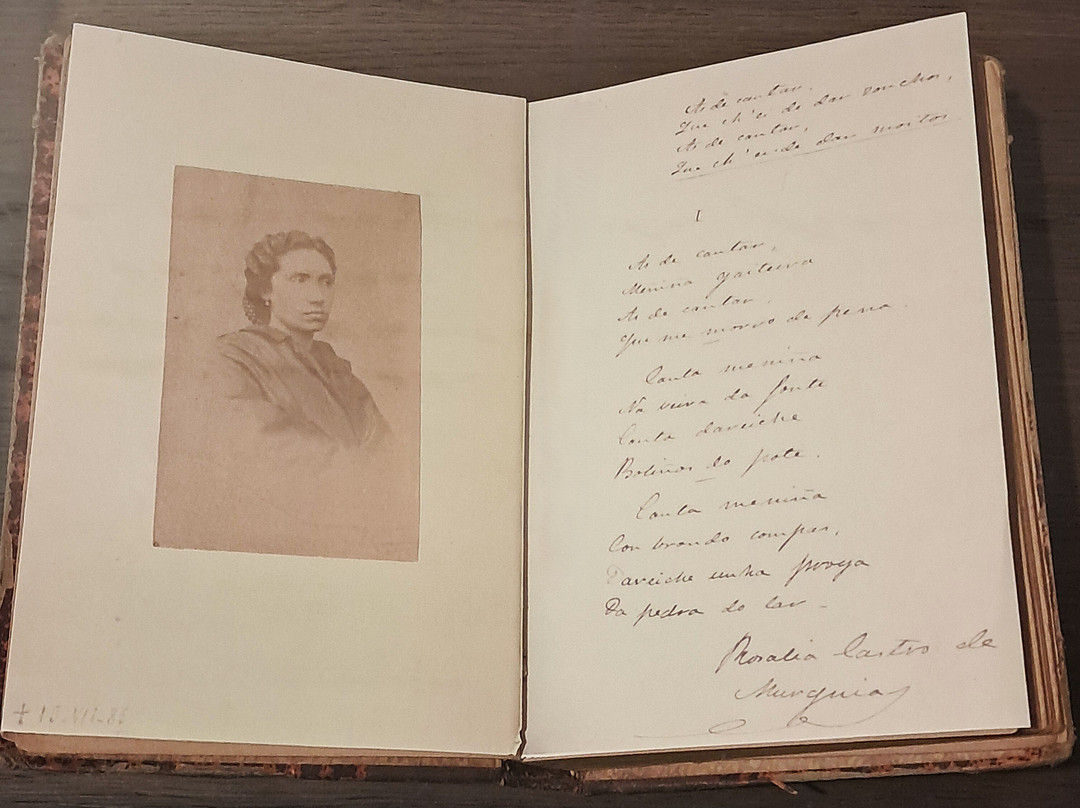 + 15-VII-85
As de cantar.
Que ch'ei de dar zonchos,
As de cantar,
Que ch'ei de dar moitos.
I
As de cantar,
Meniña gaiteira
As de cantar.
Que me morro de pena.
Canta meniña
Na veira da fonte
Canta dareiche
Boliños do pote.
Canta meniña
Con brando compas,
Dareiche unha proya
Da pedra do lar -
Rosalia Castro de
Murguia